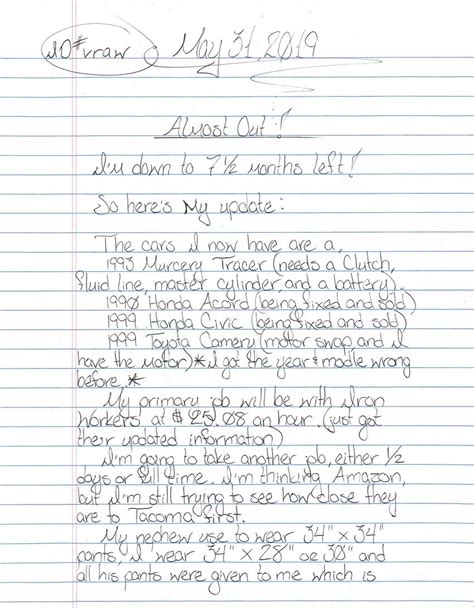 May 31, 2019
Almost Out!
I'm down to 7 1/2 months left!
So here's My update:
The cars I now have are a,
1993 Murcery Tracer (needs a Clutch,
fluid line, master cylinder, and a battery).
1990 Honda Acord (being fixed and sold)
1999 Honda Civic (being fixed and sold)
1999 Toyota Camery (motor swap and I
have the motor) *I got the year & modle wrong
before.*
My primary job will be with Iron
Workers at $25.08 an hour. (just got
their updated information)
I'm going to take another job, either 1/2
days or full time. I'm thinking Amazon,
but I'm still trying to see how close they
are to Tacoma first.
My nephew use to wear 34" x 34"
pants, I wear 34" x 28" or 30" and
all his pants were given to me which is